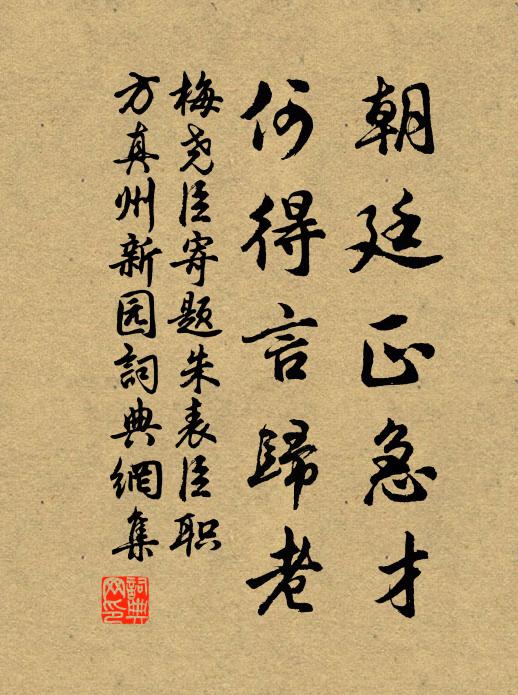 朝廷正急才
何得言歸老
梅尧臣寄题朱表臣职
方真州新园詞典網集
詞典網印